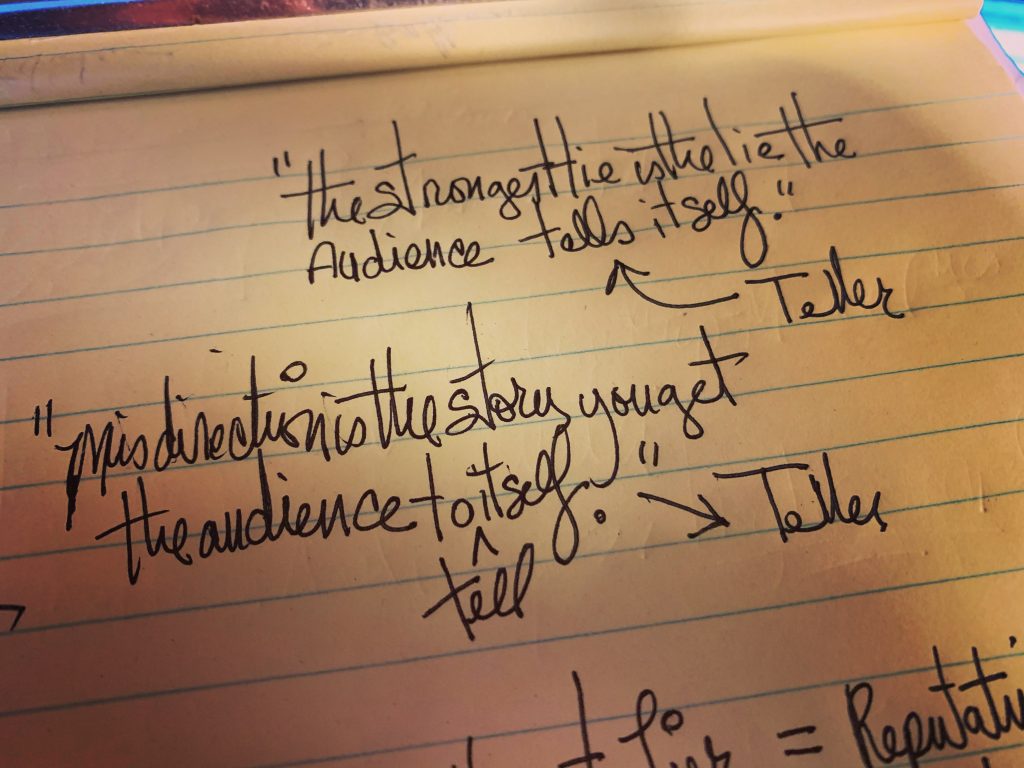 "the strongest lie is the lie the
Audience tells itself."
Teller
"misdirection is the story you get
the audience to itself."
Teller
tell
= Reputati